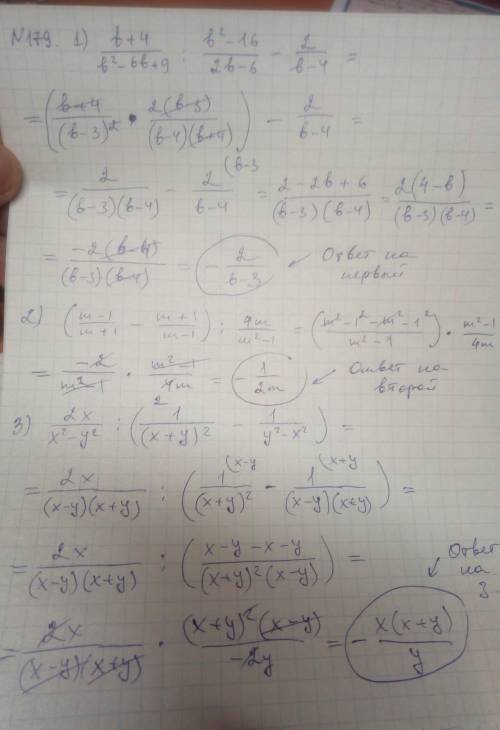 №179. 1) (b+4)/(b²-6b+9) : (b²-16)/(2b-6) - 2/(b-4) =
= ((b+4)/(b-3)² • 2(b-3)/((b-4)(b+4))) - 2/(b-4) =
= 2/((b-3)(b-4)) - 2/(b-4) (b-3 = (2-2b+6)/((b-3)(b-4)) = 2(4-b)/((b-3)(b-4)) =
= -2(b-4)/((b-3)(b-4)) = - 2/(b-3) ↙ Ответ на первый
2) ((m-1)/(m+1) - (m+1)/(m-1)) : 4m/(m²-1) = ((m²-1²-m²-1²)/(m²-1)) • (m²-1)/4m
= -2/(m²-1) • (m²-1)/4m = - 1/2m ↙ Ответ на второй
3) 2x/(x²-y²) : (1/(x+y)² - 1/(y²-x²)) =
= 2x/((x-y)(x+y)) : (1/(x+y)² (x-y - 1/((x-y)(x+y)) (x+y) =
= 2x/((x-y)(x+y)) : ((x-y-x-y)/((x+y)²(x-y))) = Ответ на 3.
- 2x/((x-y)(x+y)) • (x+y)²(x-y)/(-2y) = - x(x+y)/y